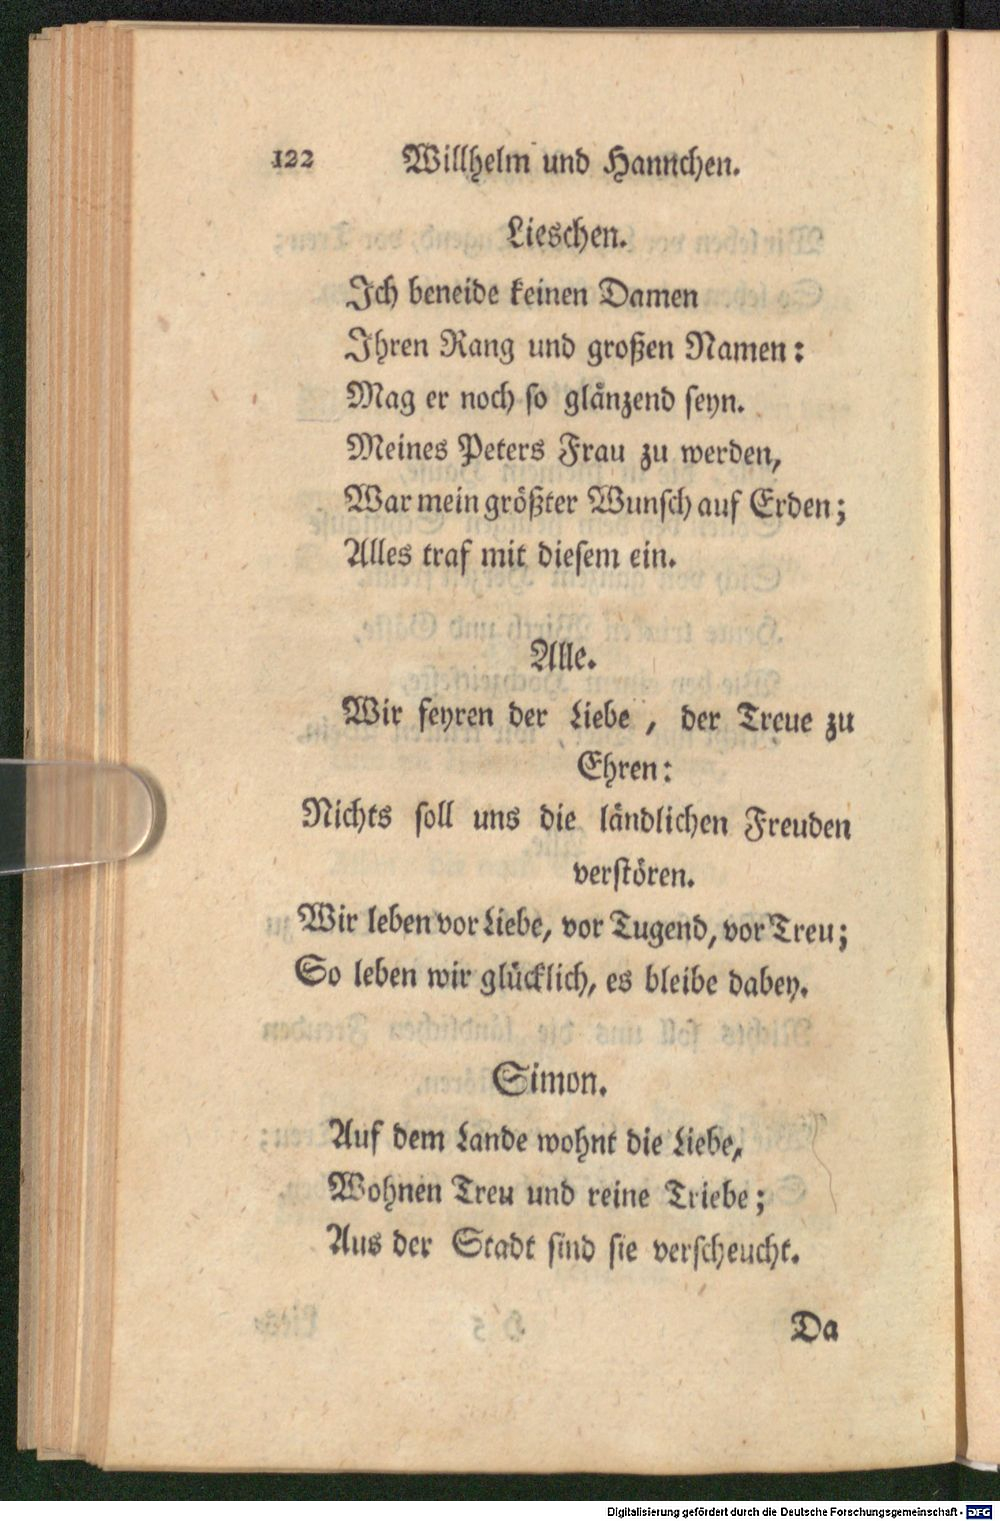 122 Willhelm und Hannchen.
Lieschen.
Ich beneide keinen Damen
Ihren Rang und großen Namen:
Mag er noch so glänzend seyn.
Meines Peters Frau zu werden,
War mein größter Wunsch auf Erden;
Alles traf mit diesem ein.
Alle.
Wir feyren der Liebe, der Treue zu
Ehren:
Nichts soll uns die ländlichen Freuden
verstören.
Wir leben vor Liebe, vor Tugend, vor Treu;
So leben wir glücklich, es bleibe dabey.
Simon.
Auf dem Lande wohnt die Liebe,
Wohnen Treu und reine Triebe;
Aus der Stadt sind sie verscheucht.
Da
Digitalisierung gefördert durch die Deutsche Forschungsgemeinschaft - DFG